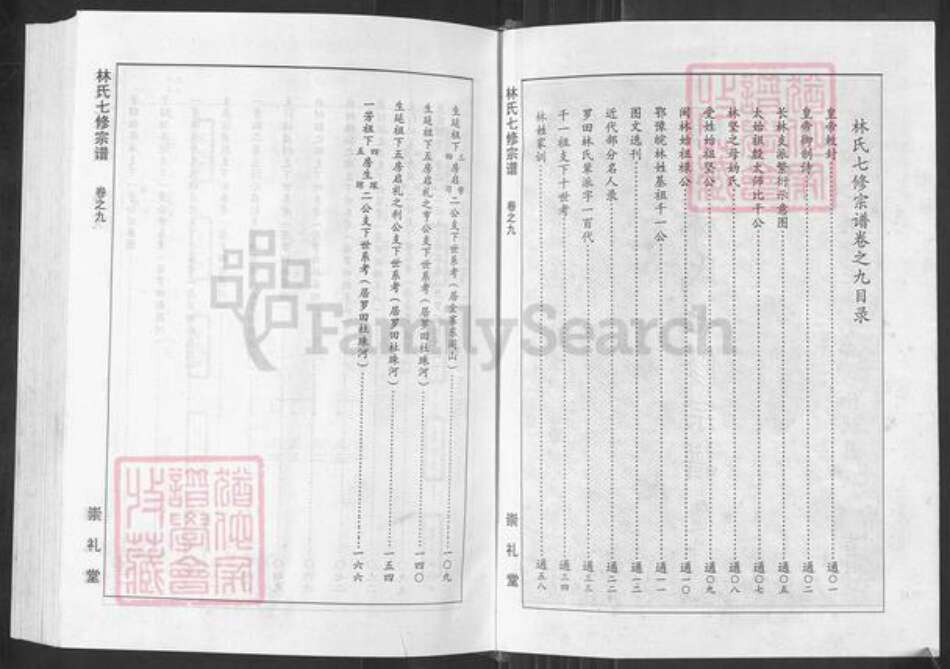 林氏七修宗谱卷之九目录
皇帝敕封……通〇一
皇帝御制诗……通〇二
长林支派繁衍示意图……通〇五
太始祖殷太师比干公……通〇七
林坚之母妫氏……通〇八
受姓始祖坚公……通〇九
闽林始祖禄公……通一〇
鄂豫皖林姓基祖千一公……通一一
图文选刊……通一二
近代部分名人录……通二二
罗田林氏辈派字一百代……通三三
千一祖支下十世考……通三四
林姓家训……通五八
林氏七修宗谱
卷之九
崇礼堂
生延祖下三四房启二公支下世系考……一〇九
生延祖下五房启礼之亨公支下世系考(居罗田杜珠河)……一四〇
生延祖下五房启礼之利公支下世系考(居罗田杜珠河)……一五四
一芳祖下四五房生二公支下世系考(居罗田杜珠河)……一六六
林氏七修宗谱
卷之九
崇礼堂
FamilySearch